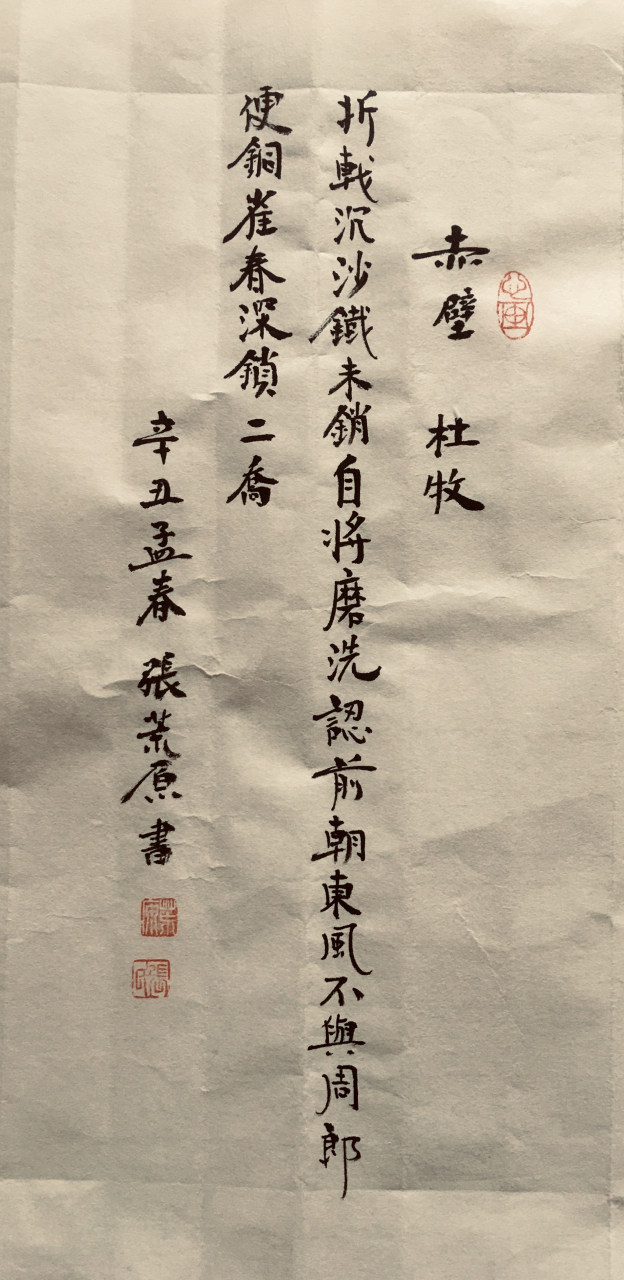 赤壁 杜牧
折戟沉沙鐵未銷自將磨洗認前朝東風不與周郎
便銅雀春深鎖二喬
辛丑孟春 張荒原書